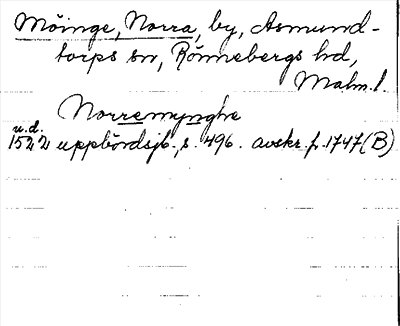 Möinge, Norra, by, Asmund-
torps sn, Rönnebergs hd,
Malm. l.
Norremynghe
u.d.
1522 uppbördsjb. s. 496. avskr. f. 1747 (B)